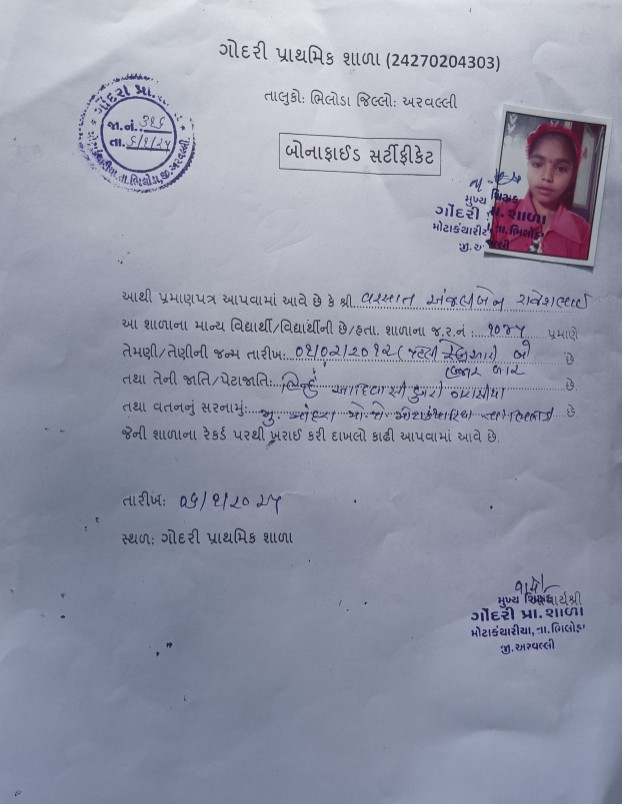 ગોદરી પ્રાથમિક શાળા (24270204303)
તાલુકો: ભિલોડા જિલ્લો: અરવલ્લી
ગોદરા પ્રા.
જા.નં. ૩૨૬
તા. ૬/૧/૨૫
તા. ભિલોડા, જી. અરવલ્લી.
બોનાફાઈડ સર્ટીફીકેટ
મુખ્ય શિક્ષક
ગોંદરી પ્રા. શાળા
તા. ભિલોડા
જી. અરવલ્લી
આથી પ્રમાણપત્ર આપવામાં આવે છે કે શ્રી અંજલીબેન
આ શાળાના માન્ય વિદ્યાર્થી/વિદ્યાર્થીની છે/હતા. શાળાના જ.ર.નં : ૧૦૪૫ પ્રમાણે
તેમણી/તેણીની જન્મ તારીખ: ૦૧/૦૨/૨૦૧૨ (પહેલી ફેબ્રુઆરી બે છે
હજાર બાર
તથા તેની જાતિ/પેટાજાતિ: હિન્દુ આદિવાસી ડુંગરી ગરાસીયા છે.
તથા વતનનું સરનામું: મુ. પો. તા. ભિલોડા છે.
જેની શાળાના રેકર્ડ પરથી ખરાઈ કરી દાખલો કાઢી આપવામાં આવે છે.
તારીખ: ૦૬/૧/૨૦૨૫
સ્થળ: ગોદરી પ્રાથમિક શાળા
મુખ્ય શિક્ષક
આચાર્યશ્રી
ગોંદરી પ્રા. શાળા
મોટાકંથારીયા, તા. ભિલોડા
જી. અરવલ્લી